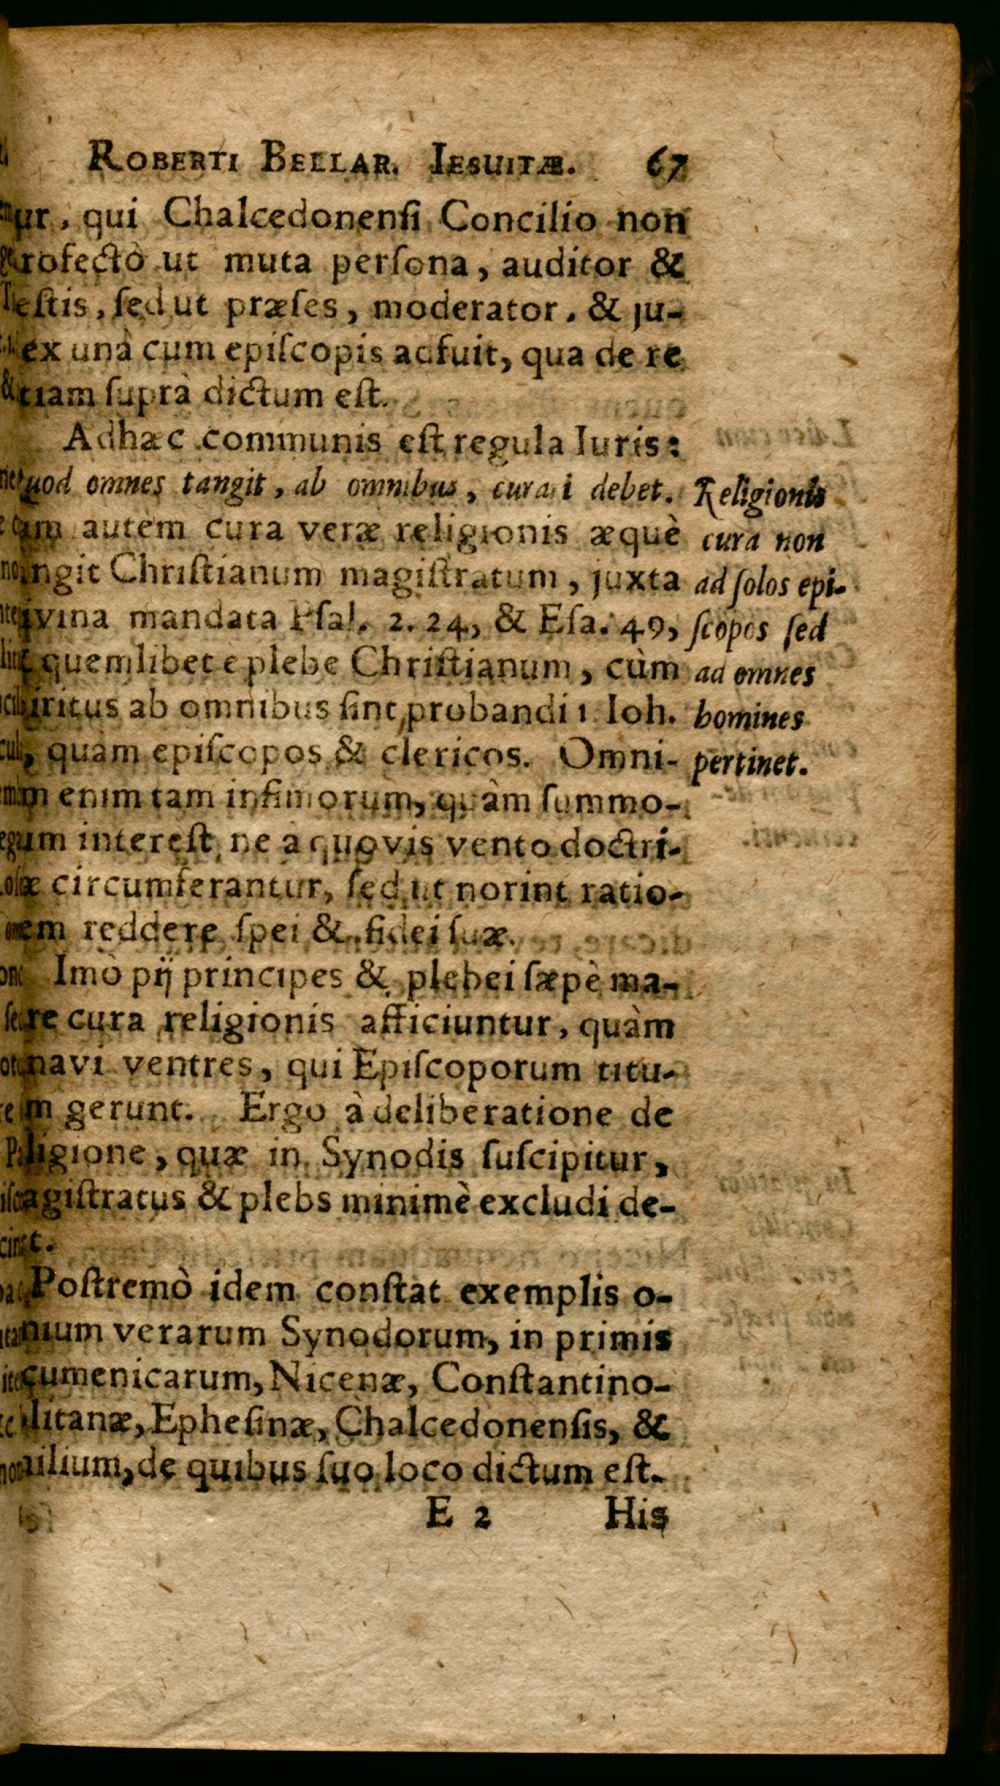 ROBERTI BELLAR. IESUITÆ. 67
ur, qui Chalcedonenſi Concilio non
rofectò ut muta perſona, auditor &
eſtis, ſed ut præſes, moderator, & ju-
ex unà cum epiſcopis adfuit, qua de re
tiam ſuprà dictum eſt.
Adhæc communis eſt regula Iuris:
uod omnes tangit, ab omnibus, curari debet.
am autem cura veræ religionis æquè
ngit Chriſtianum magiſtratum, juxta
ivina mandata Pſal. 2. 24, & Eſa. 49,
t quemlibet e plebe Chriſtianum, cùm
iritus ab omnibus ſint probandi 1 Ioh.
, quàm epiſcopos & clericos. Omni-
m enim tam infimorum, quàm ſummo-
um intereſt, ne a quovis vento doctri-
æ circumferantur, ſed ut norint ratio-
em reddere ſpei & fidei ſuæ.
Imò pij principes & plebei ſæpè ma-
re cura religionis afficiuntur, quàm
navi ventres, qui Epiſcoporum titu-
m gerunt. Ergo à deliberatione de
ligione, quæ in Synodis ſuſcipitur,
agiſtratus & plebs minimè excludi de-
t.
Poſtremò idem conſtat exemplis o-
nium verarum Synodorum, in primis
cumenicarum, Nicenæ, Conſtantino-
litanæ, Epheſinæ, Chalcedonenſis, &
ilium, de quibus ſuo loco dictum eſt.
E 2 His
Religionis
cura non
ad ſolos epi-
ſcopos ſed
ad omnes
homines
pertinet.